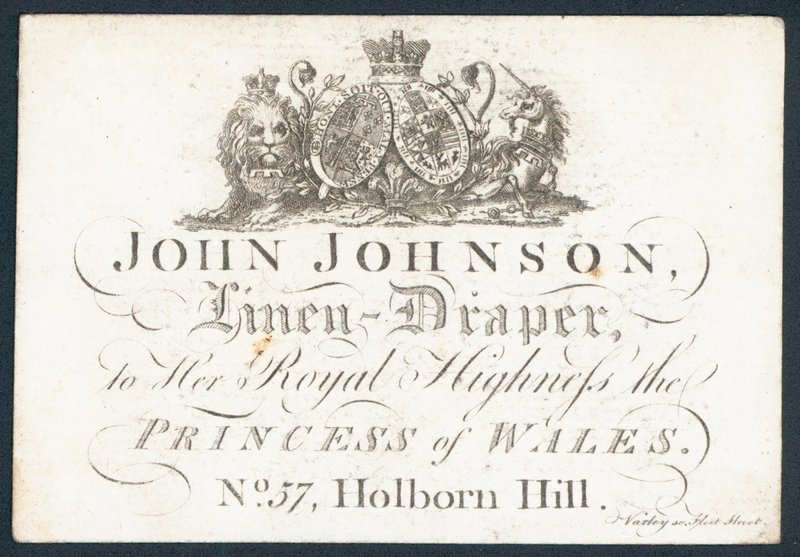 HONI·SOIT·QUI·MAL
JOHN JOHNSON,
Linen-Draper,
to Her Royal Highneſs the
PRINCESS of WALES.
No. 57, Holborn Hill.
Varley sc. Fleet Street.